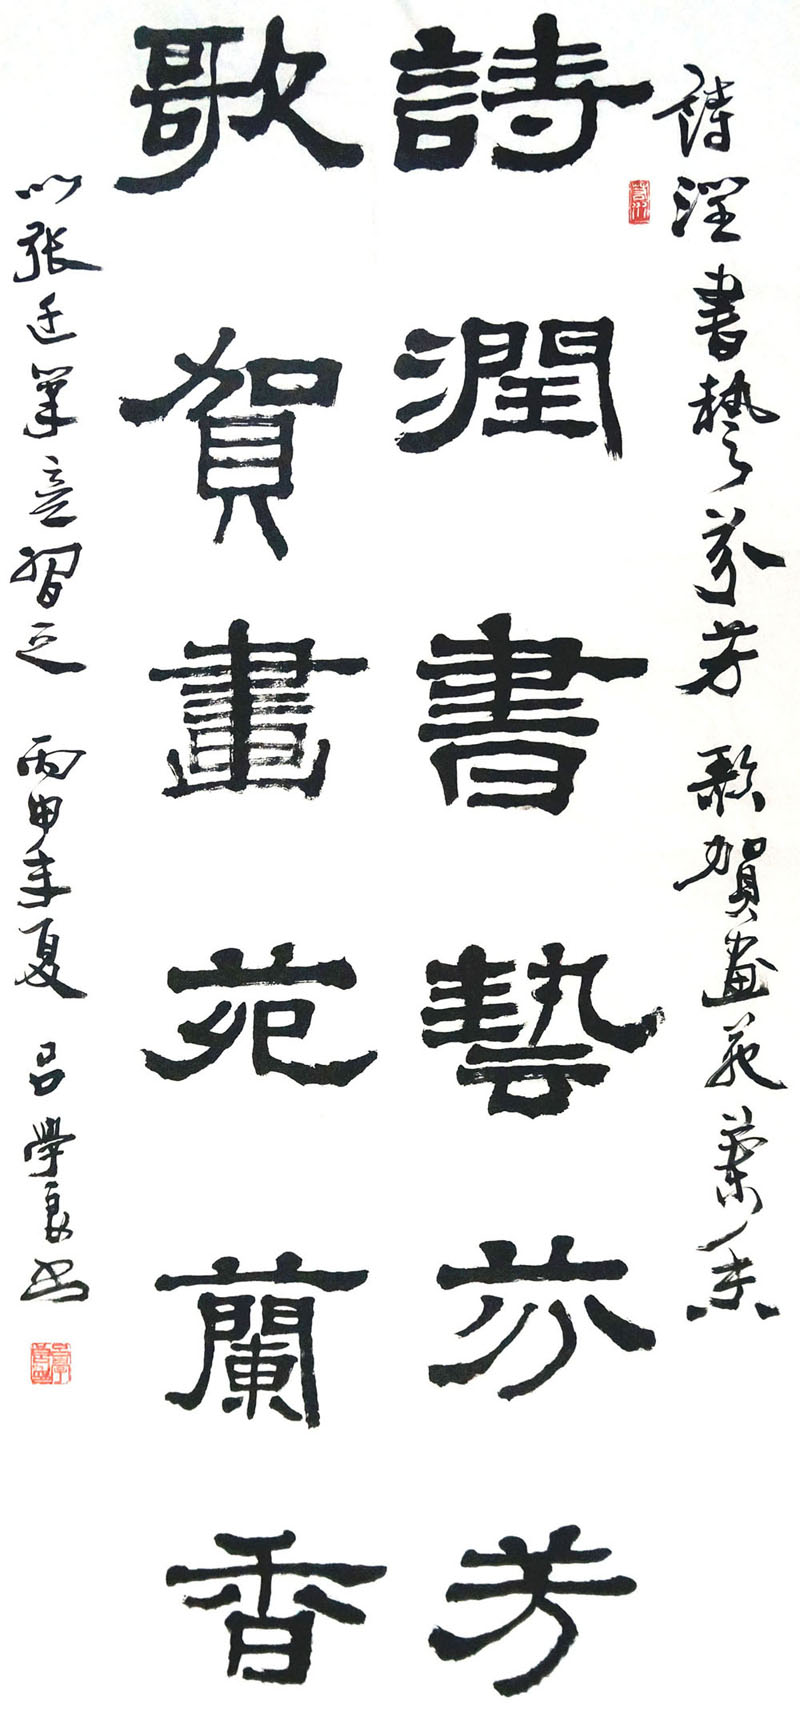 詩潤書藝芬芳歌賀畫苑蘭香
詩潤書藝芬芳
歌賀畫苑蘭香
以張遷筆意習之丙申年夏吕學良书